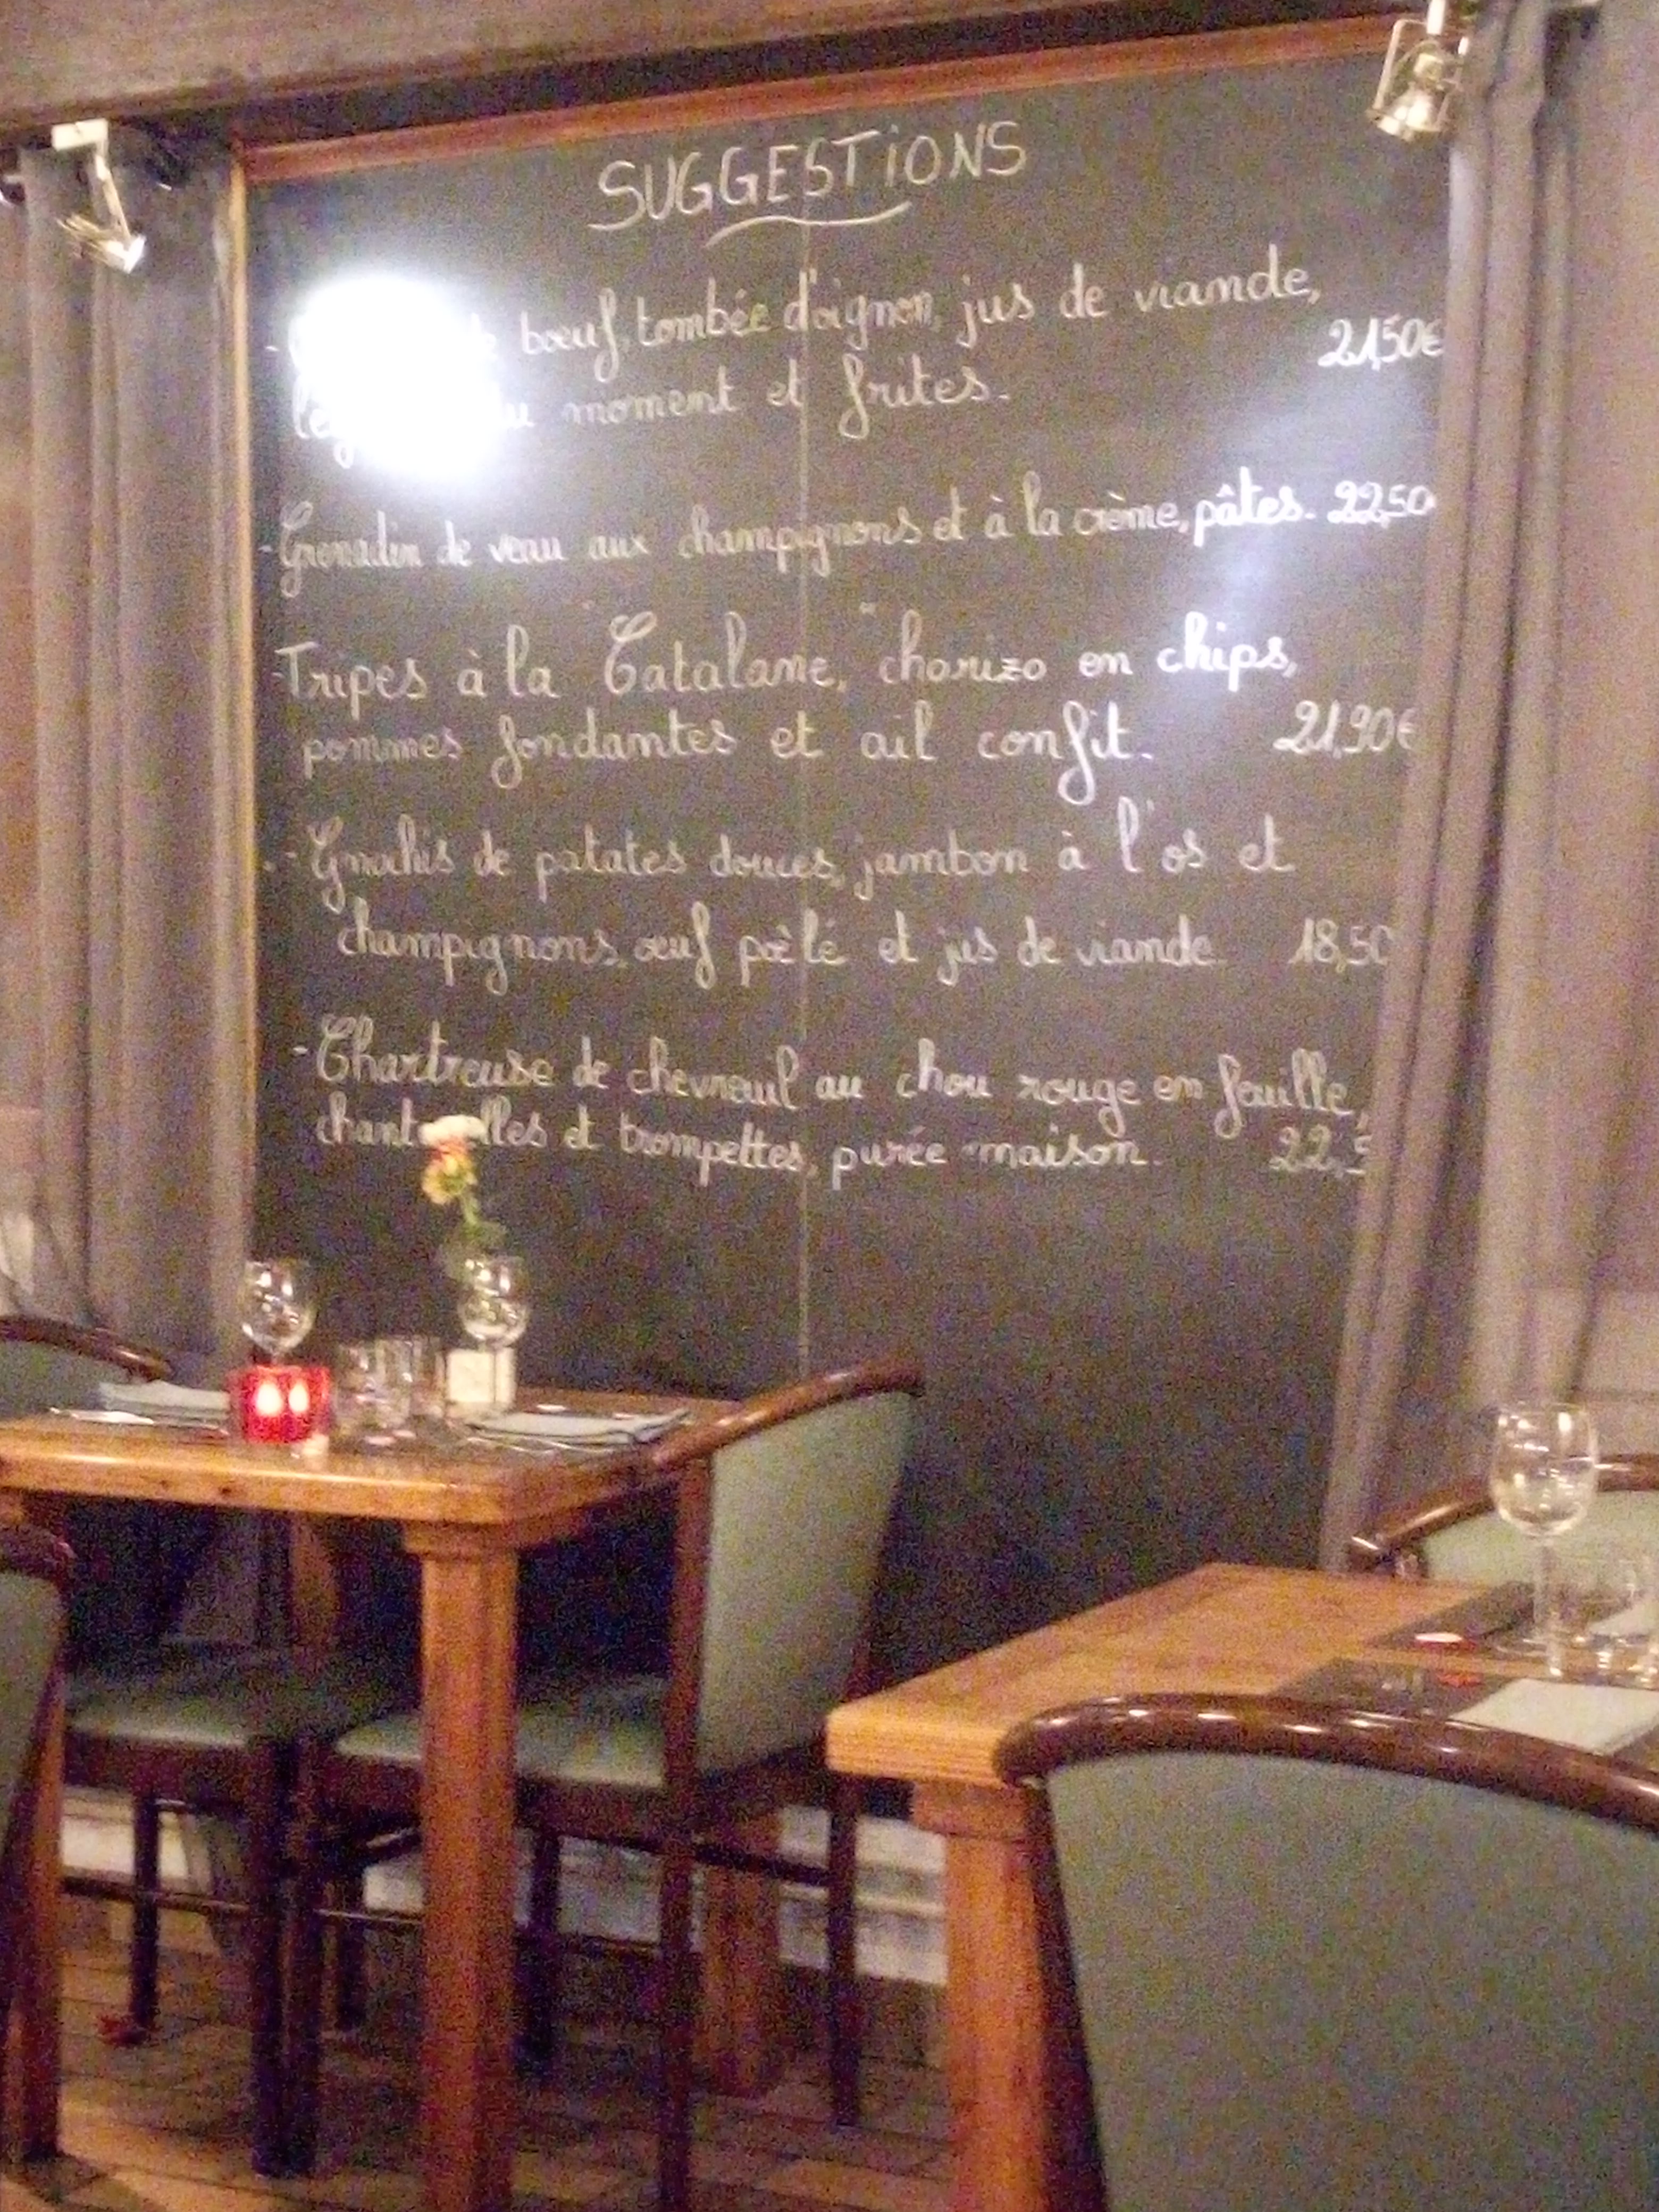 SUGGESTIONS
- bœuf, tombée d'oignon, jus de viande,
21,50€
moment et frites.
- Grenadin de veau aux champignons et à la crème, pâtes. 22,50
- Tripes à la "Catalane," chorizo en chips,
pommes fondantes et ail confit. 21,90€
- Gnochis de patates douces, jambon à l'os et
champignons, œuf poêlé et jus de viande 18,50
- Chartreuse de chevreuil au chou rouge en feuille,
et trompettes, purée maison. 22,5